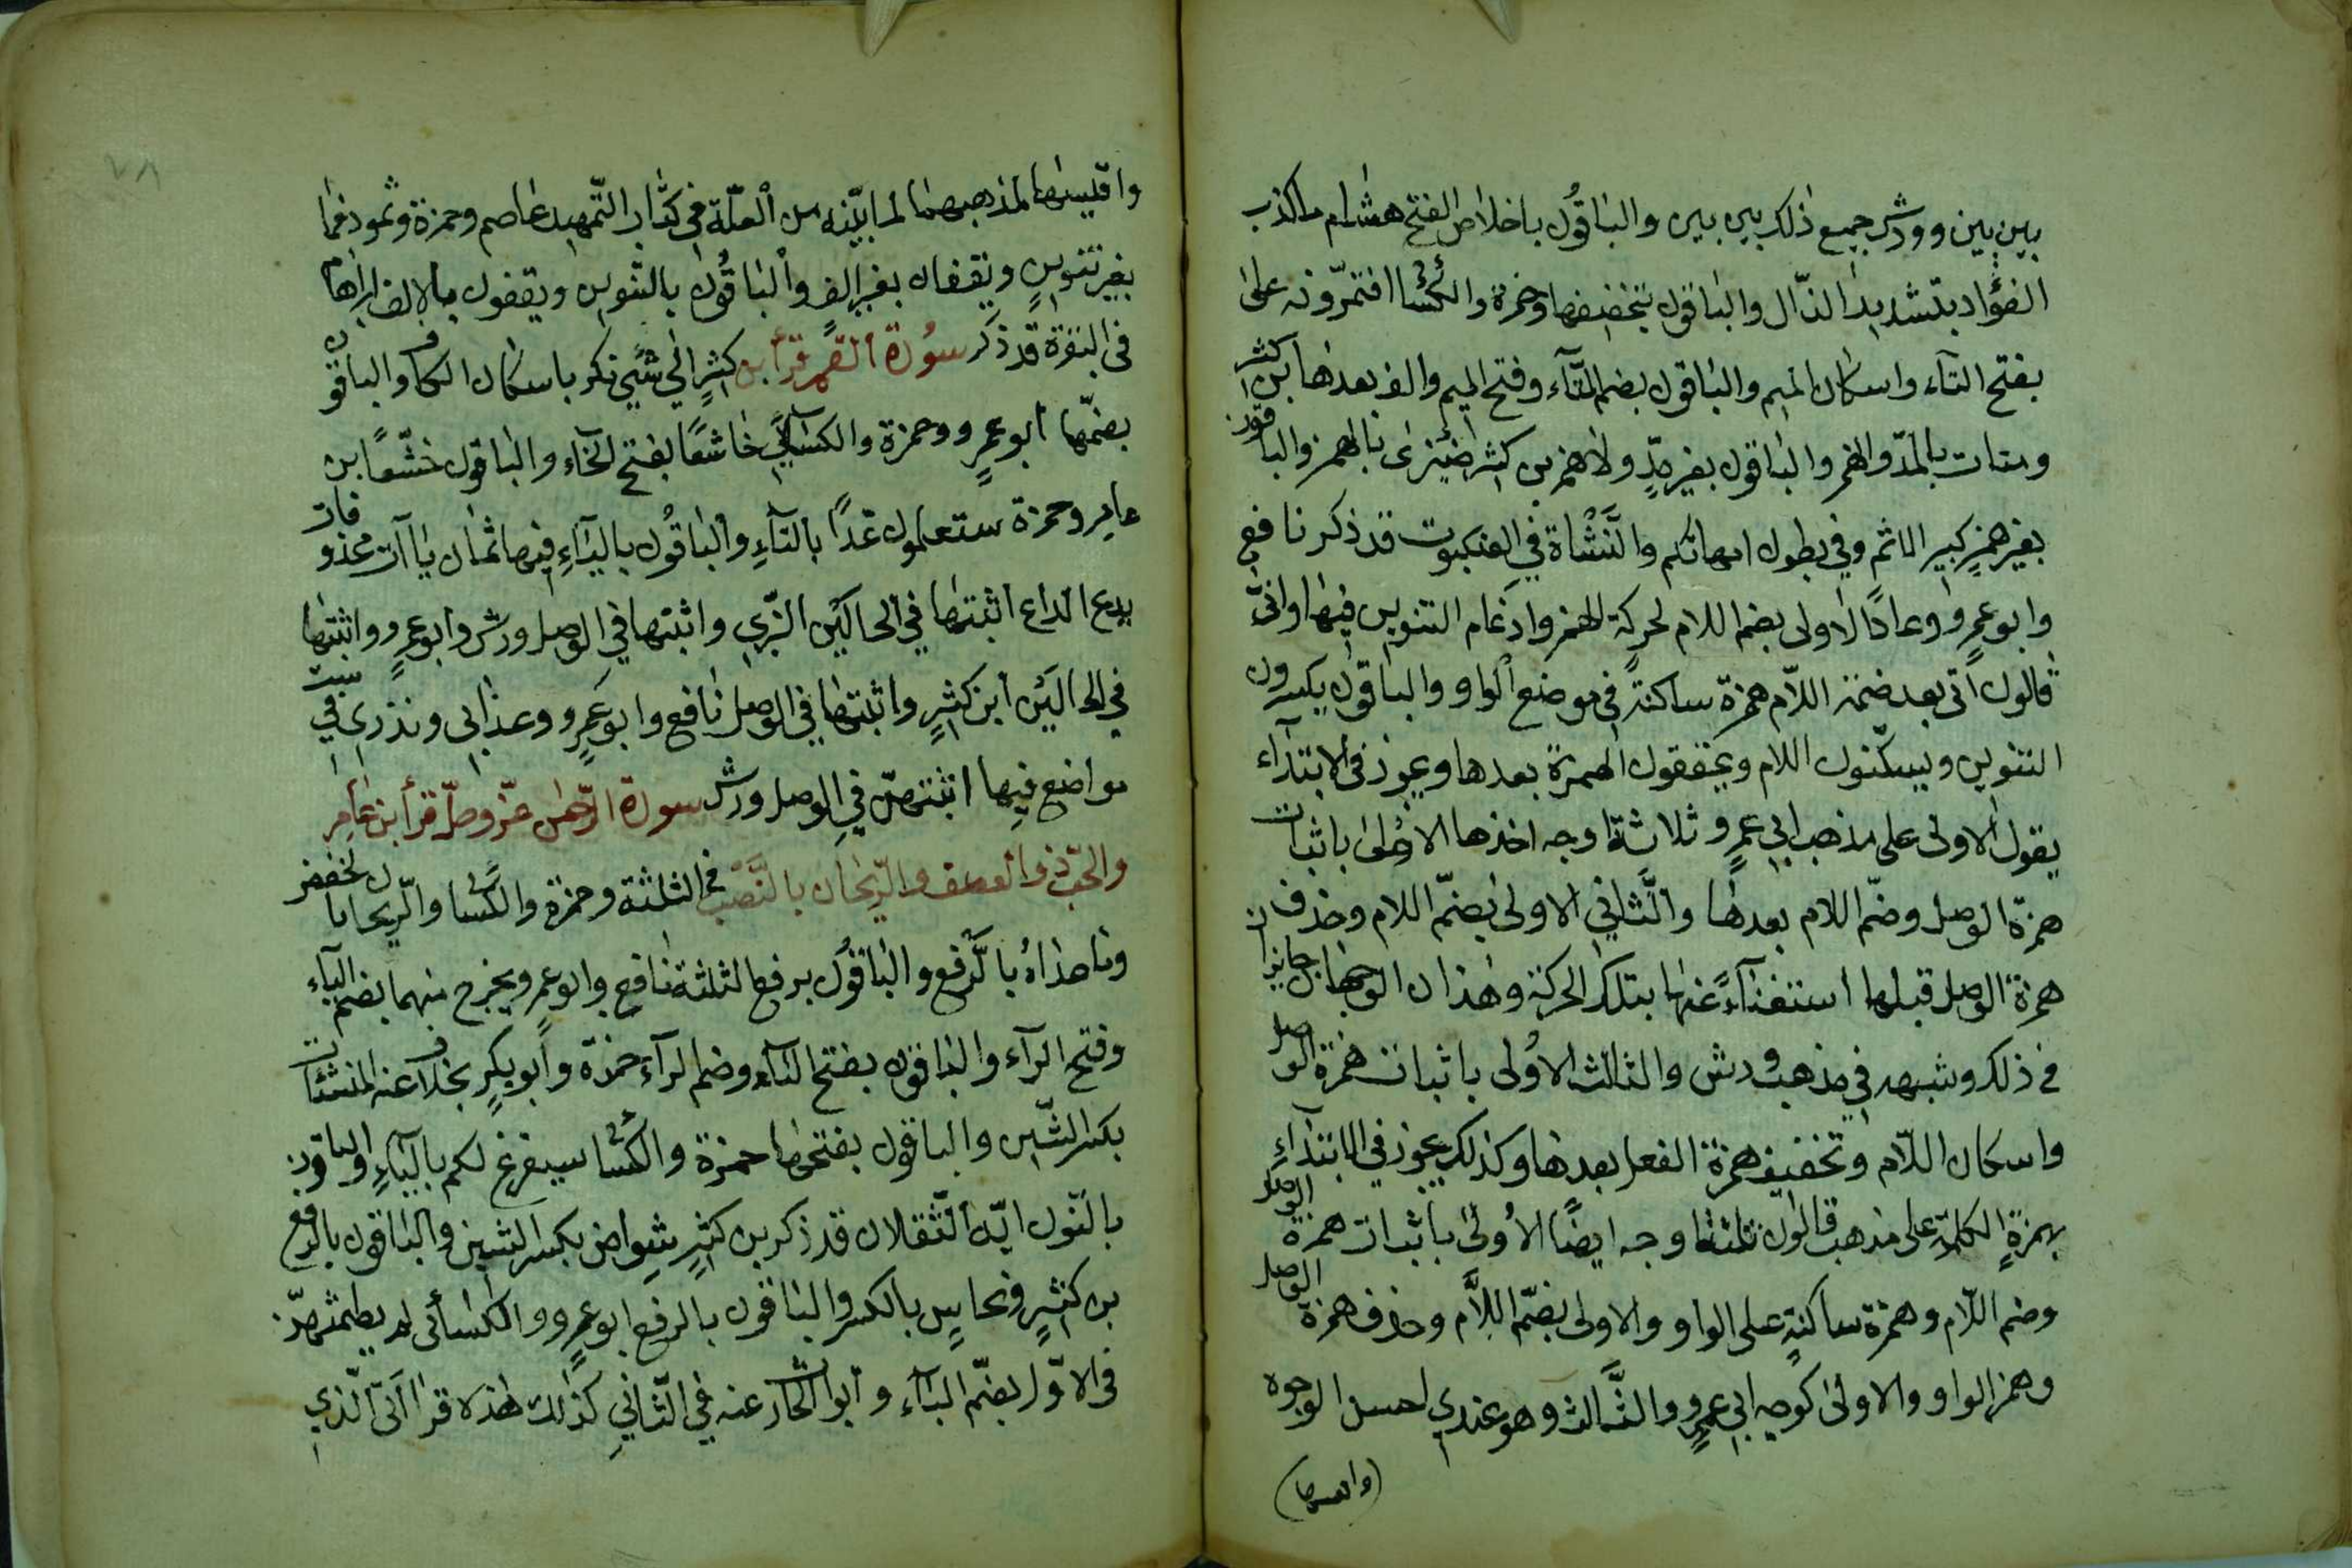 بين بين وورش جميع ذلك بين بين والباقون باخلاص الفتح هشام ما كذب
الفؤاد بتشديد الذّال والباقون بتخفيفها وحمزة والكسائى افتمرونه على
بفتح التاء واسكان الميم والباقون بضم التّآء وفتح الميم والف بعدها ابن كثير
ومنات بالمدّ والهمز والباقون بغير مدٍّ ولا همز بن كثير ضئيزى بالهمز والباقون
بغير همزٍ كبير الاثم وفي بطون امهاتكم والنَّشْاة في العنكبوت قد ذكر نافع
وابو عمرٍو وعادًا الاولى بضم اللام لحركة الهمز وادغام التنوين فيها واتى
قالون اتى بعد ضمة اللاّم همزة ساكنةً في موضع الواو والباقون يكسرون
التنوين ويسكّنون اللام ويحققون الهمزة بعدها ويجوز فى الابتدآء
بقول الاولى على مذهب ابي عمرٍو ثلاثة اوجه احدها الاولى باثبات
همزة الوصل وضمّ اللام بعدها والثَّاني الاولى بضمّ اللام وحذف
همزة الوصل قبلها استغنآءً عنها بتلك الحركة وهذان الوجهان جايزان
في ذلك وشبهه في مذهب ورش والثالث الاولى باثبات همزة الوصل
واسكان اللاّم وتخفيف همزة الفعل بعدها وكذلك يجوز في الابتدآءِ
بهمزةِ الكلمة على مذهب قالون ثلثة اوجه ايضًا الاُولى باثبات همزة الوصل
وضم اللاّم وهمزة ساكنةٍ على الواو والاولى بضمّ اللاَّم وحذف همزة الوصل
وهمز الواو والاولى كوجه ابي عمرٍو والثَّالث وهو عندي احسن الوجوه
(واقيسها)
واقيسها لمذهبهما لما بيّنه من العلّة في كتاب التّمهيد عاصم وحمزة وثمود فما
بغير تنوينٍ ويقفان بغير الفٍ والباقُون بالتّنوين ويقفون بالالف ابراهام
فى البقرة قد ذكر سورة القمر قرأ ابن كثيرٍ الى شيءٍ نكر باسكان الكاف والباقون
بضمّها ابو عمرٍو وحمزة والكسائيّ خاشعًا بفتح الخآء والباقون خشّعًا ابن
عامرٍ وحمزة ستعلمون غدًا بالتآءِ والباقُون باليآءِ فيها ثمان ياآت محذوفات
يدع الداع اثبتها في الحالَيْن البّزي واثبتها في الوصل ورش وابو عمرٍو واثبتها
في الحالَيْن ابن كثيرٍ واثبتها في الوصل نافع وابو عمرٍو وعذابى ونذرى في ستة
مواضع فيها اثبتهنّ في الوصل ورش سورة الرّحمٰن عزّ وجلّ قرأ ابن عامر
والحبّ ذوا لعصف والرّيحان بالنّصْب في الثلثة وحمزة والكسائى والرّيحان بالخفض
وما عداهُ بالرَّفع والباقون برفع الثلثة نافع وابو عمرٍو يخرج منهما بضم اليآء
وفتح الرآء والباقون بفتح اليآء وضم الرآء حمزة وابو بكرٍ بخلاف عنه المنشئات
بكسر الشّين والباقون بفتحها حمزة والكسائى سيفرغ لكم باليآءِ والباقون
بالنّون ايّه الثّقلان قد ذكر بن كثيرٍ شِواض بكسر الشين والباقون بالرفع
بن كثيرٍ ونحاسٍ بالكسر والباقون بالرفع ابو عمرٍو والكسائى لم يطمثهنّ
فى الاوّل بضمّ اليآء وابو الحارث عنه في الثّاني كذلك هذه قراآتى الّذي